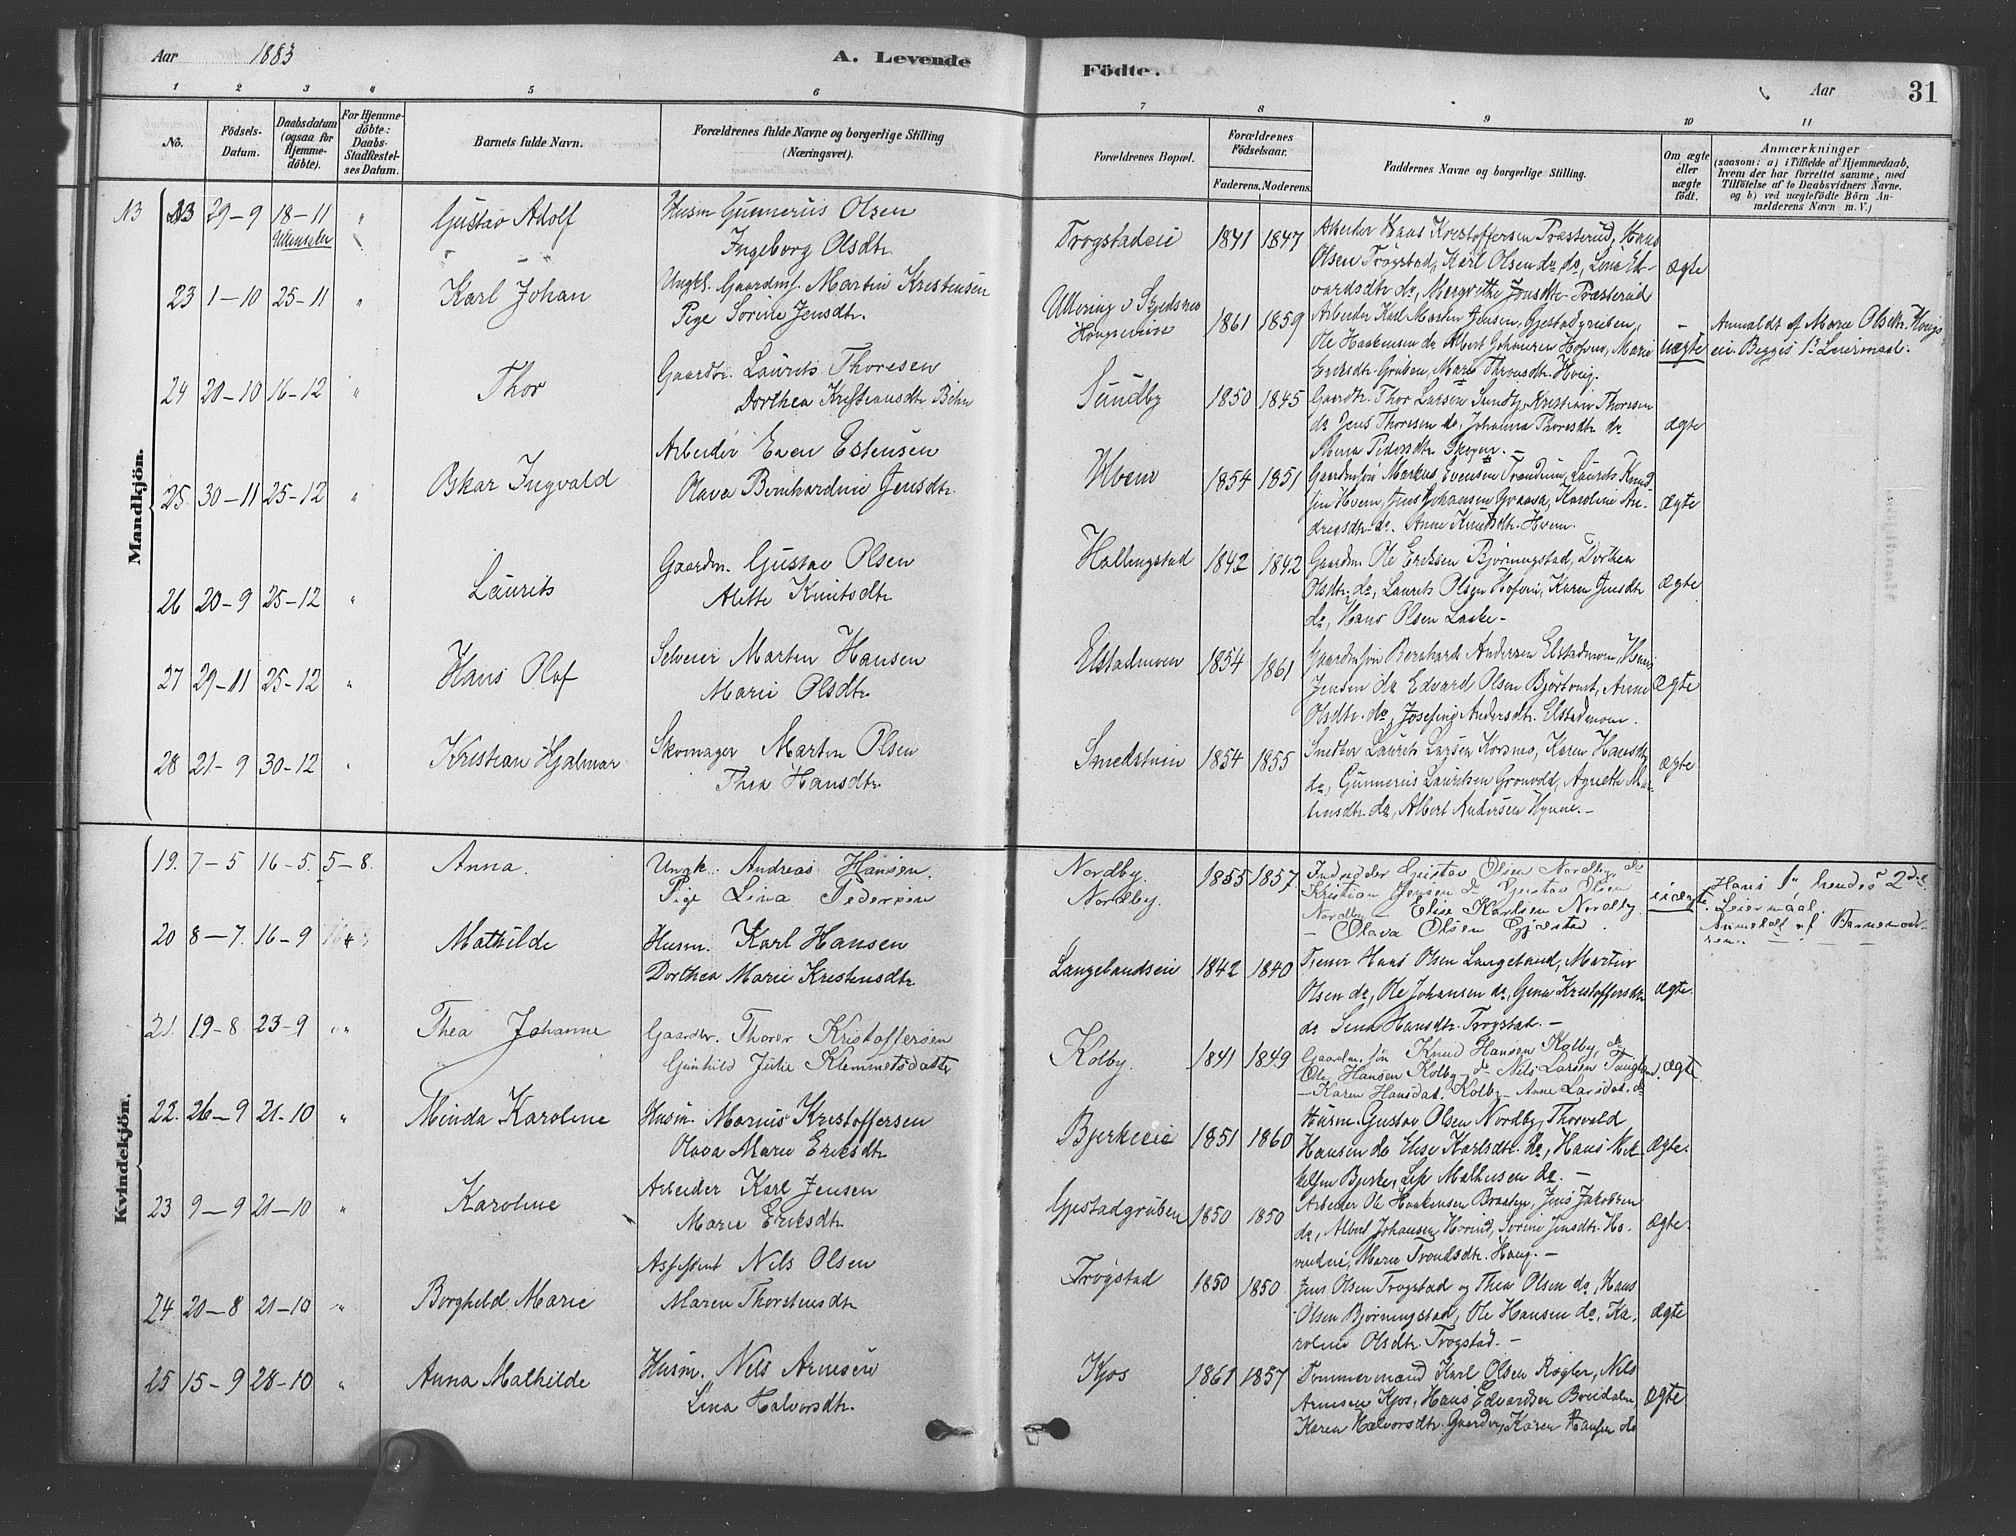 Aar 1883 A. Levende
Födte. Aar 31
1 2 3 4 5 6
7 8 9 10 11
No.
Födsels-Datum.
Daabsdatum (ogsaa for Hjemme-döbte).
For Hjemme-döbte: Daabs-Stadfæstel-ses Datum.
Barnets fulde Navn.
Forældrenes fulde Navne og borgerlige Stilling (Næringsvei).
Forældrenes Bopæl.
Forældrenes Födselsaar.
Faderens. Moderens.
Faddernes Navne og borgerlige Stilling.
Om ægte eller uægte födt.
Anmærkninger
(saasom: a) i Tilfælde af Hjemmedaab,
hvem der har forrettet samme, med
Tilföielse af to Daabsvidners Navne.
og b) ved uægtefödte Börn An-
melderens Navn m. V.)
Mandkjön.
N3 23 29-9 18-11 " Gustav Adolf Husm Gunnerius Olsen
Ullensaker
Ingeborg Olsdtr.
Trogstadeie 1841 1847 Arbeider Hans Krestoffersen Præsterud, Hans
Olsen Trøgstad, Karl Olsen do do, Lena Ed-
vardsdtr do, Mergrethe Jensdtr Præsterud
ægte
23 1-10 25-11 " Karl Johan Ungk. Gaardmf. Martin Kristensen
Pige Sorine Jensdtr.
1861 1859 Arbeider Karl Martin Jensen, Gjestadgruben,
Ole Haakensen do Albert Johansen Hofvin, Marie
Eriksdtr Gruben, Marie Throndsdtr. Houg.
uægte
Anmeldt af Marie Olsdtr. Hougs
eie. Begges 1ste Leiermaal.
24 20-10 16-12 " Thor Gaardbr. Laurits Thoresen
Dorthea Kristiansdtr Bihn
Sundby 1850 1845 Gaardbr. Thor Larsen Sundby, Kristian Thoresen
do Jens Thoresen do, Johanna Thoresdtr do
Skogen. -
ægte
25. 30-11 25-12 " Oskar Ingvald Arbeider Even Estensen
Olava Bernhardine Jensdtr.
Hvam 1854 1851 Gaardmsøn Markus Evensen Trandum, Laurits Knud-
sen Hvam, Jens Johansen Graava, Karoline An-
dreasdtr do. Anne Knudsdtr. Hvam.
ægte
26 20-9 25-12 " Laurits Gaardm. Gustav Olsen
Alette Knutsdtr
Hallingstad 1842 1842 Gaardm Ole Eriksen Bjørningstad, Dorthea
Olsdtr. do, Laurits Olsen Hofvin, Karen Jensdtr
do, Hans Olsen Laake -
ægte
27 29-11 25-12 " Hans Olaf Selveier Martin Hansen
Marie Olsdtr.
Elstadmoen 1854 1861 Gaardmsøn Bernhard Andersen Elstadmoen, Hans
Jensen do Edvard Olsen Bjørtomt, Anne
Olsdtr. do, Josefine Andersdtr. Elstadmoen.
ægte
28 21-9 30-12 " Kristian Hjalmar Skomager Martin Olsen
Thea Hansdtr.
Smedstuin 1854 1855 Snedker Laurits Larsen Korsmo, Karen Hansdtr
do, Gunnerius Lauritsen Gronvold, Agnethe Mar-
tinsdtr. do, Albert Andersen Hynne. -
ægte
Kvindekjön.
19. 7-5 16-5. 5-8. Anna. Ungk. Andreas Hansen.
Pige Lina Pedersen
Nordby. 1855 1857
Nordby.
Gustav Olsen Nordby, do
Kristian Jensen do Gustav Olsen
Nordby - Elise Karlsen Nordby.
- Olava Olsen Gjæstad.
uægte.
Hans 1ste hendes 2det
Leiermaal.
Anmeldt af Barnemod-
ren.
20 8-7. 16-9 Mathilde Husm. Karl Hansen
Dorthea Marie Kristensdtr
Langelandseie 1842 1840 Tjener Hans Olsen Langeland, Martin
Olsen do, Ole Johansen do, Gina Kristoffersdtr
do Lena Hansdtr. Trogstad. -
ægte.
21. 19-8. 23-9 " Thea Johanne Gaardbr. Thorer Kristoffersen
Gunhild Julie Klemmetsdatter
Kolby. 1841 1849 Gaardm. søn Knud Hansen Kolby, do
Ole Hansen Kolby - do Nils Larsen
- Karen Hansdat. Kolby - Anne Larsdat. do
ægte.
22. 26-9 21-10 " Minda Karoline Husm. Marius Krestoffersen
Olava Marie Eriksdtr
Bjerkeeie 1851 1860 Husm. Gustav Olsen Nordby, Thorvald
Hansen do Elise Karlsdtr. do, Hans Mik-
kelsen Bjerke, Mathisen do. -
ægte.
23 9-9 21-10 " Karoline Arbeider Karl Jensen
Marie Eriksdtr
Gjestadgruben 1850 1850 Arbeider Ole Haakensen Braaten, Jens Jakobsen
do, Albert Johansen Hovind, Sorine Jensdtr. Ho-
vindeie, Marie Trondsdtr. Haug. -
ægte.
24. 20-8 21-10 " Borghild Marie Assistent Nils Olsen
Maren Thorstensdtr
Trøgstad 1850 1850 Jens Olsen Trogstad og Thea Olsen do, Hans
Olsen Bjørningstad, Ole Hansen do, Ka-
roline Olsdtr. Trogstad. -
ægte
25 15-9 28-10 " Anna Mathilde Husm. Nils Arnesen
Lina Halvorsdtr.
Kjos 1861 1857 Tommermand Karl Olsen Røgler, Nils
Arnesen Kjos, Hans Edvardsen Breidalen
Karen Halvorsdtr. Gaarder, Karen Hansen do
ægte